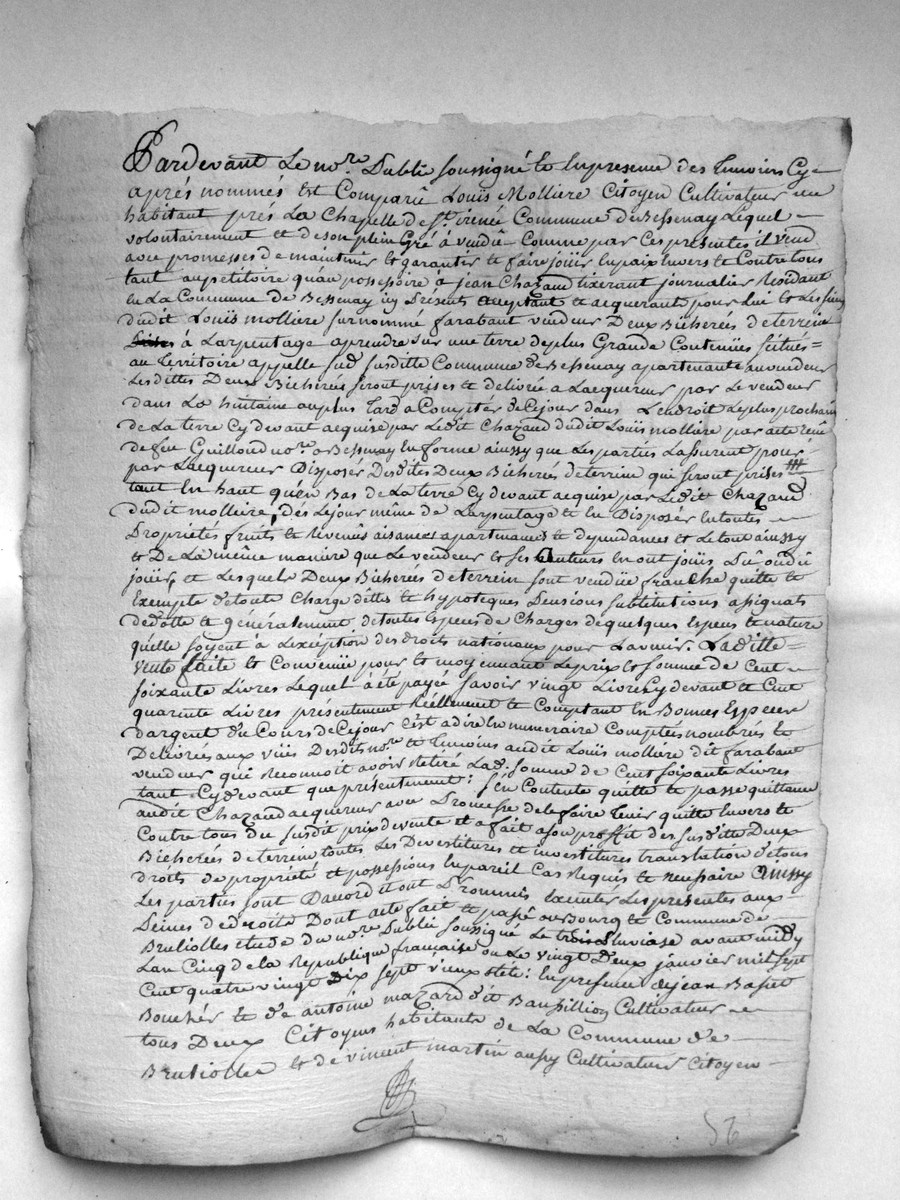 Pardevant Le no.re Public soussigné et En presence des Temoins Cy=
aprés nommés Est Comparû Louis Molliere Citoyen Cultivateur
habitant prés La Chapelle de st. irenée Commune de Bessenay Lequel -
volontairement et de son plein Gré à vendû Comme par Ces presentes il vend
avec promesses de maintenir et garantir et faire joüir En paix Envers et Contre tous
tant au petitoire qu'au possessoire à jean Chazaud tixerant journalier Residant
En La Commune de Bessenay icy Present acceptant et acquerant pour Lui et Les siens
dudit Louïs molliere surnommé farabant vendeur Deux Bicherés de terrein
à L'arpentage aprendre sur une terre de plus Grande Contenüe scitués=
au Territoire appellé sud susditte Commune de Bessenay apartenante au vendeur
Lesdittes Deux Bicherés seront prises et delivrée a Lacquereur par Le vendeur
dans La huitaine au plus Tard a Compter de Cejour dans L'endroit Le plus prochain
de La terre Cy devant acquise par Ledit Chazaud dudit Louïs molliere par acte reçu
de feu Guilloud no.re a Bessenay En forme ainssy que Les parties L'assurent pour
par Lacquereur Disposer Desdites Deux Bicherés de terrein qui seront prises
tant En haut qu'en Bas de La terre Cy devant acquise par Ledit Chazaud
dudit molliere, des Lejour même de Larpentage et En Disposer En toutes -
Proprietés fruits et Revenûs aisances apartenances et dependances et Le tout ainssy
et De La même maniere que Le vendeur et ses auteurs En ont joüis Dû ou dû
joüir, et Lesquels Deux Bicherés de terrein sont vendüe franche quitte et
Exempte de toute Charge dettes et hypoteques Pensions substitutions assignats
de dotte et généralement de toutes Especes de Charges de quelques Especes et nature
qu'elle soyent à L'exception des droits nationaux pour L'avenir. La ditte=
vente faite et Convenüe pour et moyennant Le prix et somme de Cent -
soixante Livres Lequel à été payée savoir vingt Livres Cy devant et Cent
quarente Livres présentement Réellement et Comptant En Bonnes Espece
d'argent du Cours de Cejour C'est a dire En numeraire Comptés nombrés et
Delivrés aux vües Desdits no.re et Temoins audit Louïs molliere dit farabant
vendeur qui Reconnoit avoir Retiré Lad. somme de Cent soixante Livres
tant Cy devant que présentement: s'en Contente quitte et passe quittance
audit Chazaud acquereur avec Promesse de le faire Tenir quitte Envers et
Contre tous du susdit prix de vente et a fait a son proffit des susditte Deux
Bicherés de terrein toutes Les Devestitures et investitures translation de tous
droits de propriété et possessions En pareil Cas Requis et necessaire Ainssy
Les parties sont D'accord et ont Promis Executer Les presentes aux -
Peines de droits Dont acte fait et passé au Bourg et Commune de -
Brulliolles etude du no.re Public soussigné Le trois pluviose avant midy
L'an Cinq de la Republique française ou Le vingt Deux janvier mil sept
Cent quatre vingt Dix sept vieux stile: En presence de jean Basset
Boucher et de antoine mazard dit Cultivateur
tous Deux Citoyens habitants de La Commune de
Brulliolles et de vincent martin aussy Cultivateur Citoyen -
56